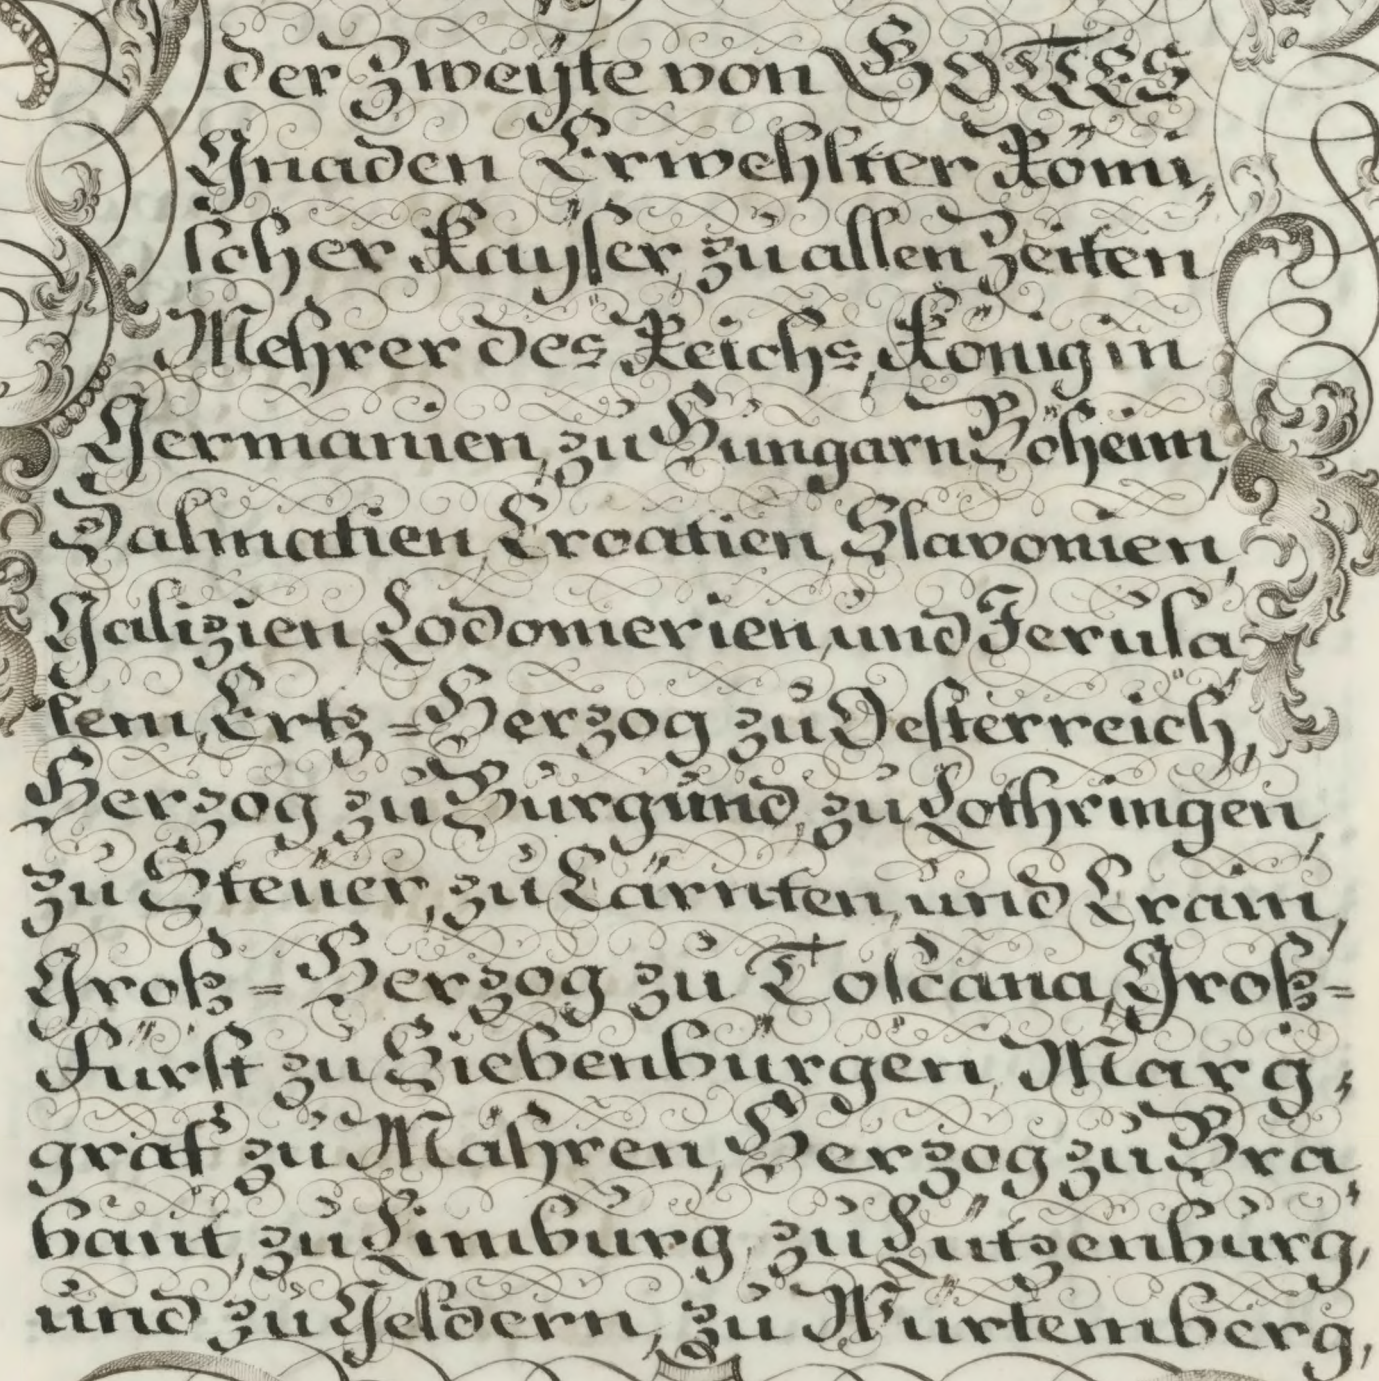 der Zweÿte von GOTTES
Gnaden Erwehlter Römi,
scher Kayser, zu allen Zeiten
Mehrer des Reichs, König in
Germanien, zu Hungarn Böheim,
Dalmatien, Croatien, Slavonien,
Galizien, Lodomerien, und Jerusa
lem, Ertz=Herzog zu Oesterreich,
Herzog zu Burgund, zu Lothringen,
zu Steüer, zu Cärnten, und Crain,
Groß=Herzog zu Toscana, Groß=
Fürst zu Siebenbürgen, Marg,
graf zu Mähren, Herzog zu Bra,
bant, zu Limburg, zu Lützenburg,
und zu Geldern, zu Würtemberg,